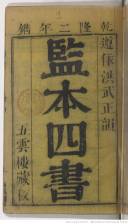 乾隆二年鐫
遵依洪武正韻
監本四書
五雲樓藏板